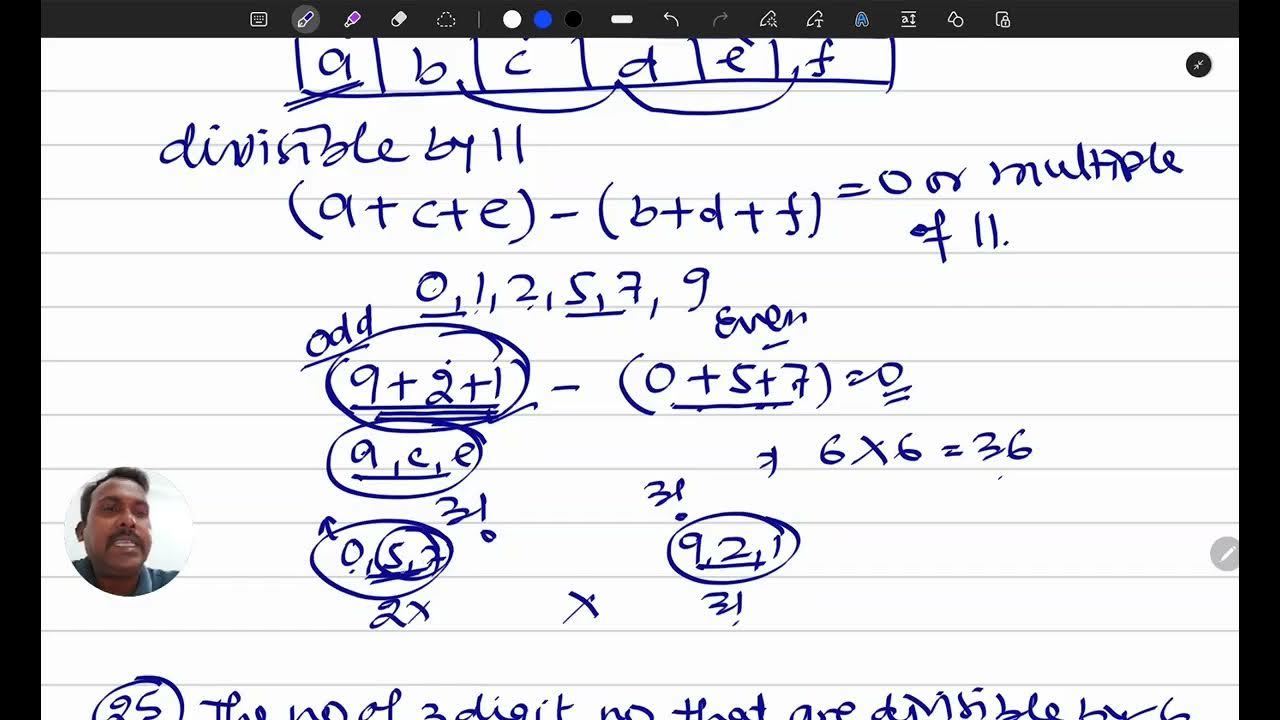 a b, c d e, f
divisible by 11
(a+c+e) - (b+d+f) = 0 or multiple of 11.
0, 1, 2, 5, 7, 9
odd Even
(9+2+1) - (0+5+7) = 0
a, c, e → 6×6=36
3! 3!
0, 5, 7 9, 2, 1
2× × 3!
25) The no of 3 digit no that are divisible by 6